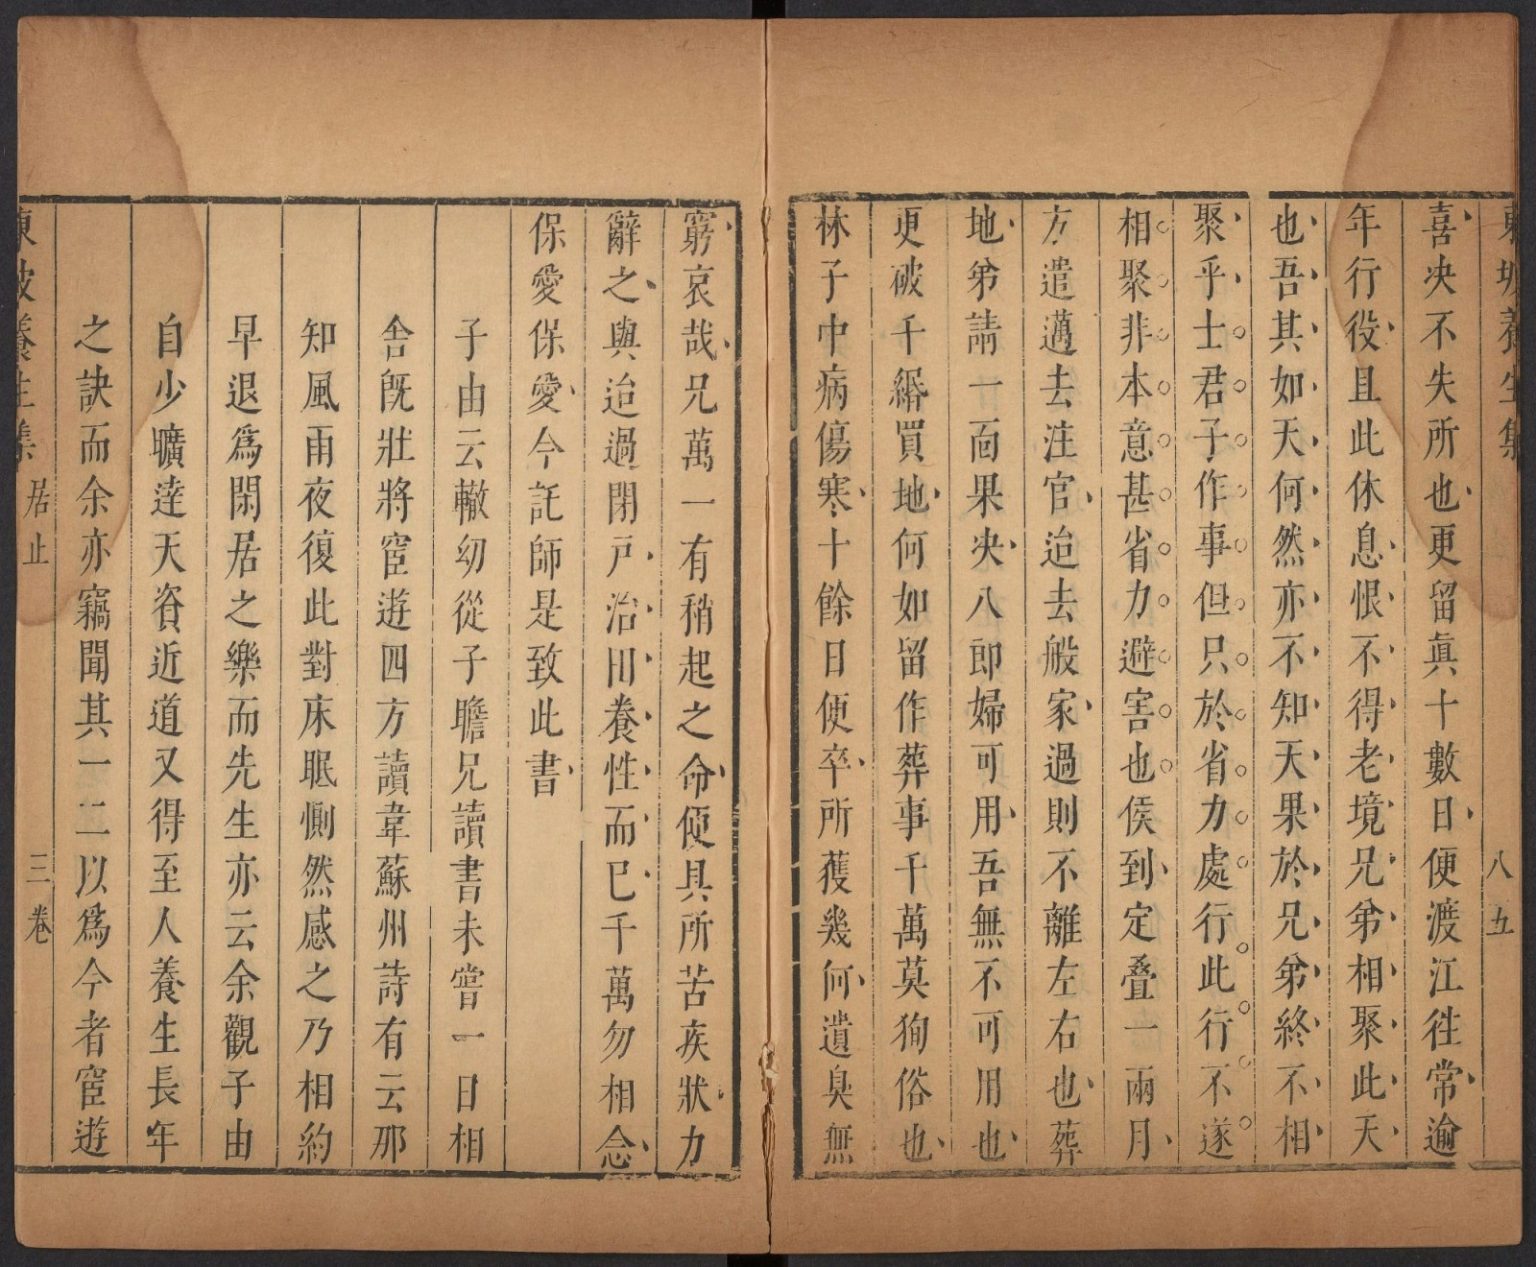 東坡養生集
八五
喜决不失所也更留眞十數日便渡江徃常逾
年行役且此休息恨不得老境兄弟相聚此天
也吾其如天何然亦不知天果於兄弟終不相
聚乎士君子作事但只於省力處行此行不遂
相聚非本意甚省力避害也侯到定叠一兩月
方遣邁去注官迨去般家過則不離左右也葬
地弟請一面果决八郎婦可用吾無不可用也
更破千緡買地何如留作葬事千萬莫狥俗也
林子中病傷寒十餘日便卒所獲幾何遺臭無
窮哀哉兄萬一有稍起之命便具所苦疾狀力
辭之與迨過閉戸治田養性而已千萬勿相念
保愛保愛今託師是致此書
子由云轍幼從子瞻兄讀書未嘗一日相
舎旣壯將宦遊四方讀韋蘇州詩有云那
知風雨夜復此對床眠惻然感之乃相約
早退爲閑居之樂而先生亦云余觀子由
自少曠達天資近道又得至人養生長年
之訣而余亦竊聞其一二以爲今者宦遊
東坡養生集
居止
三卷